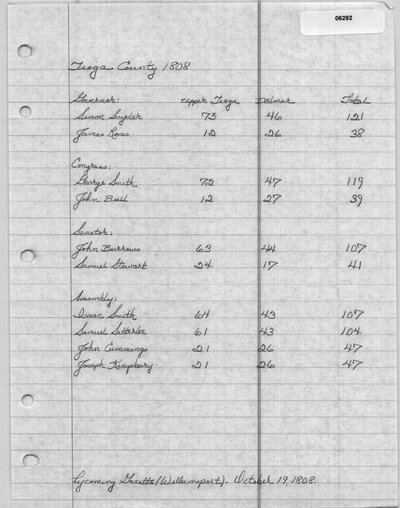 06292
Tioga County 1808
Governor: Upper Tioga Delmar Total
Simon Snyder 75 46 121
James Ross 12 26 38
Congress:
George Smith 72 47 119
John Bull 12 27 39
Senator:
John Burrows 63 44 107
Samuel Stewart 24 17 41
Assembly:
Isaac Smith 64 43 107
Samuel Satterlee 61 43 104
John Cummings 21 26 47
Joseph Kingsbury 21 26 47
Lycoming Gazette (Williamsport). October 19, 1808.